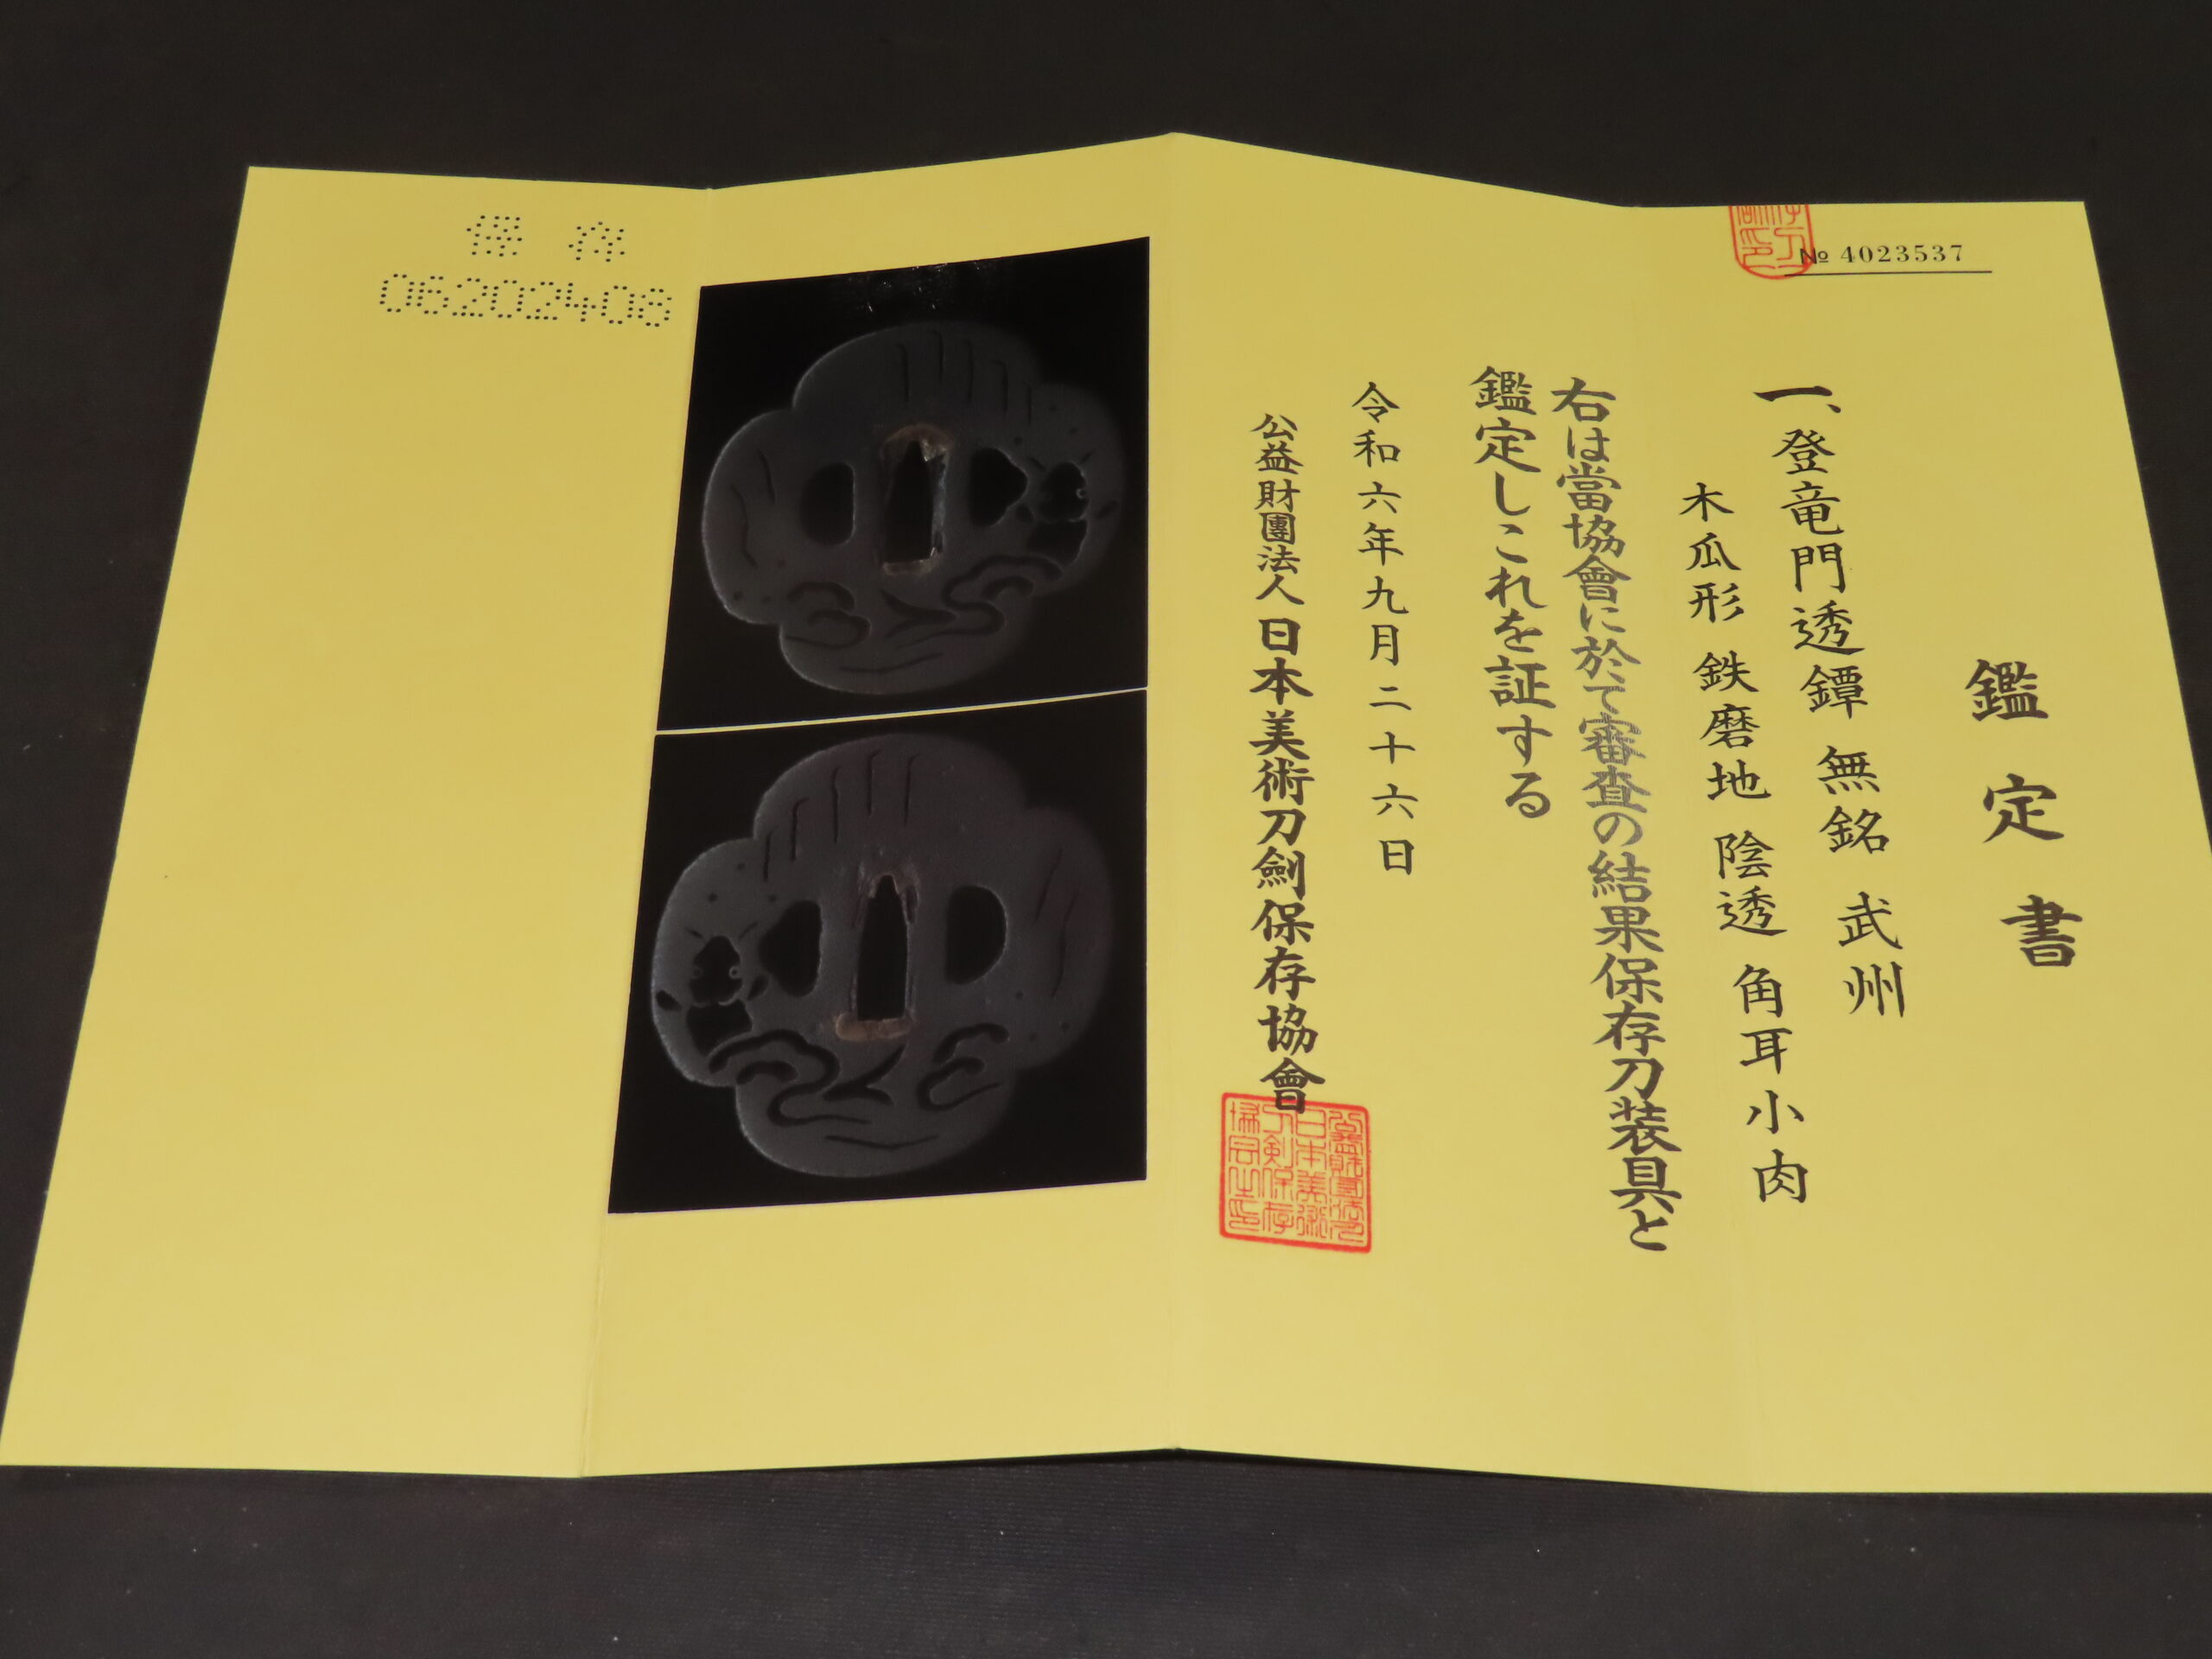 № 4023537
鑑定書
一、登竜門透鐔 無銘 武州
木瓜形 鉄磨地 陰透 角耳小肉
右は當協會に於て審査の結果保存刀装具と
鑑定しこれを証する
令和六年九月二十六日
公益財團法人日本美術刀劍保存協會
公益財團法人
日本美術
刀剣保存
協会之印
保存
06202408